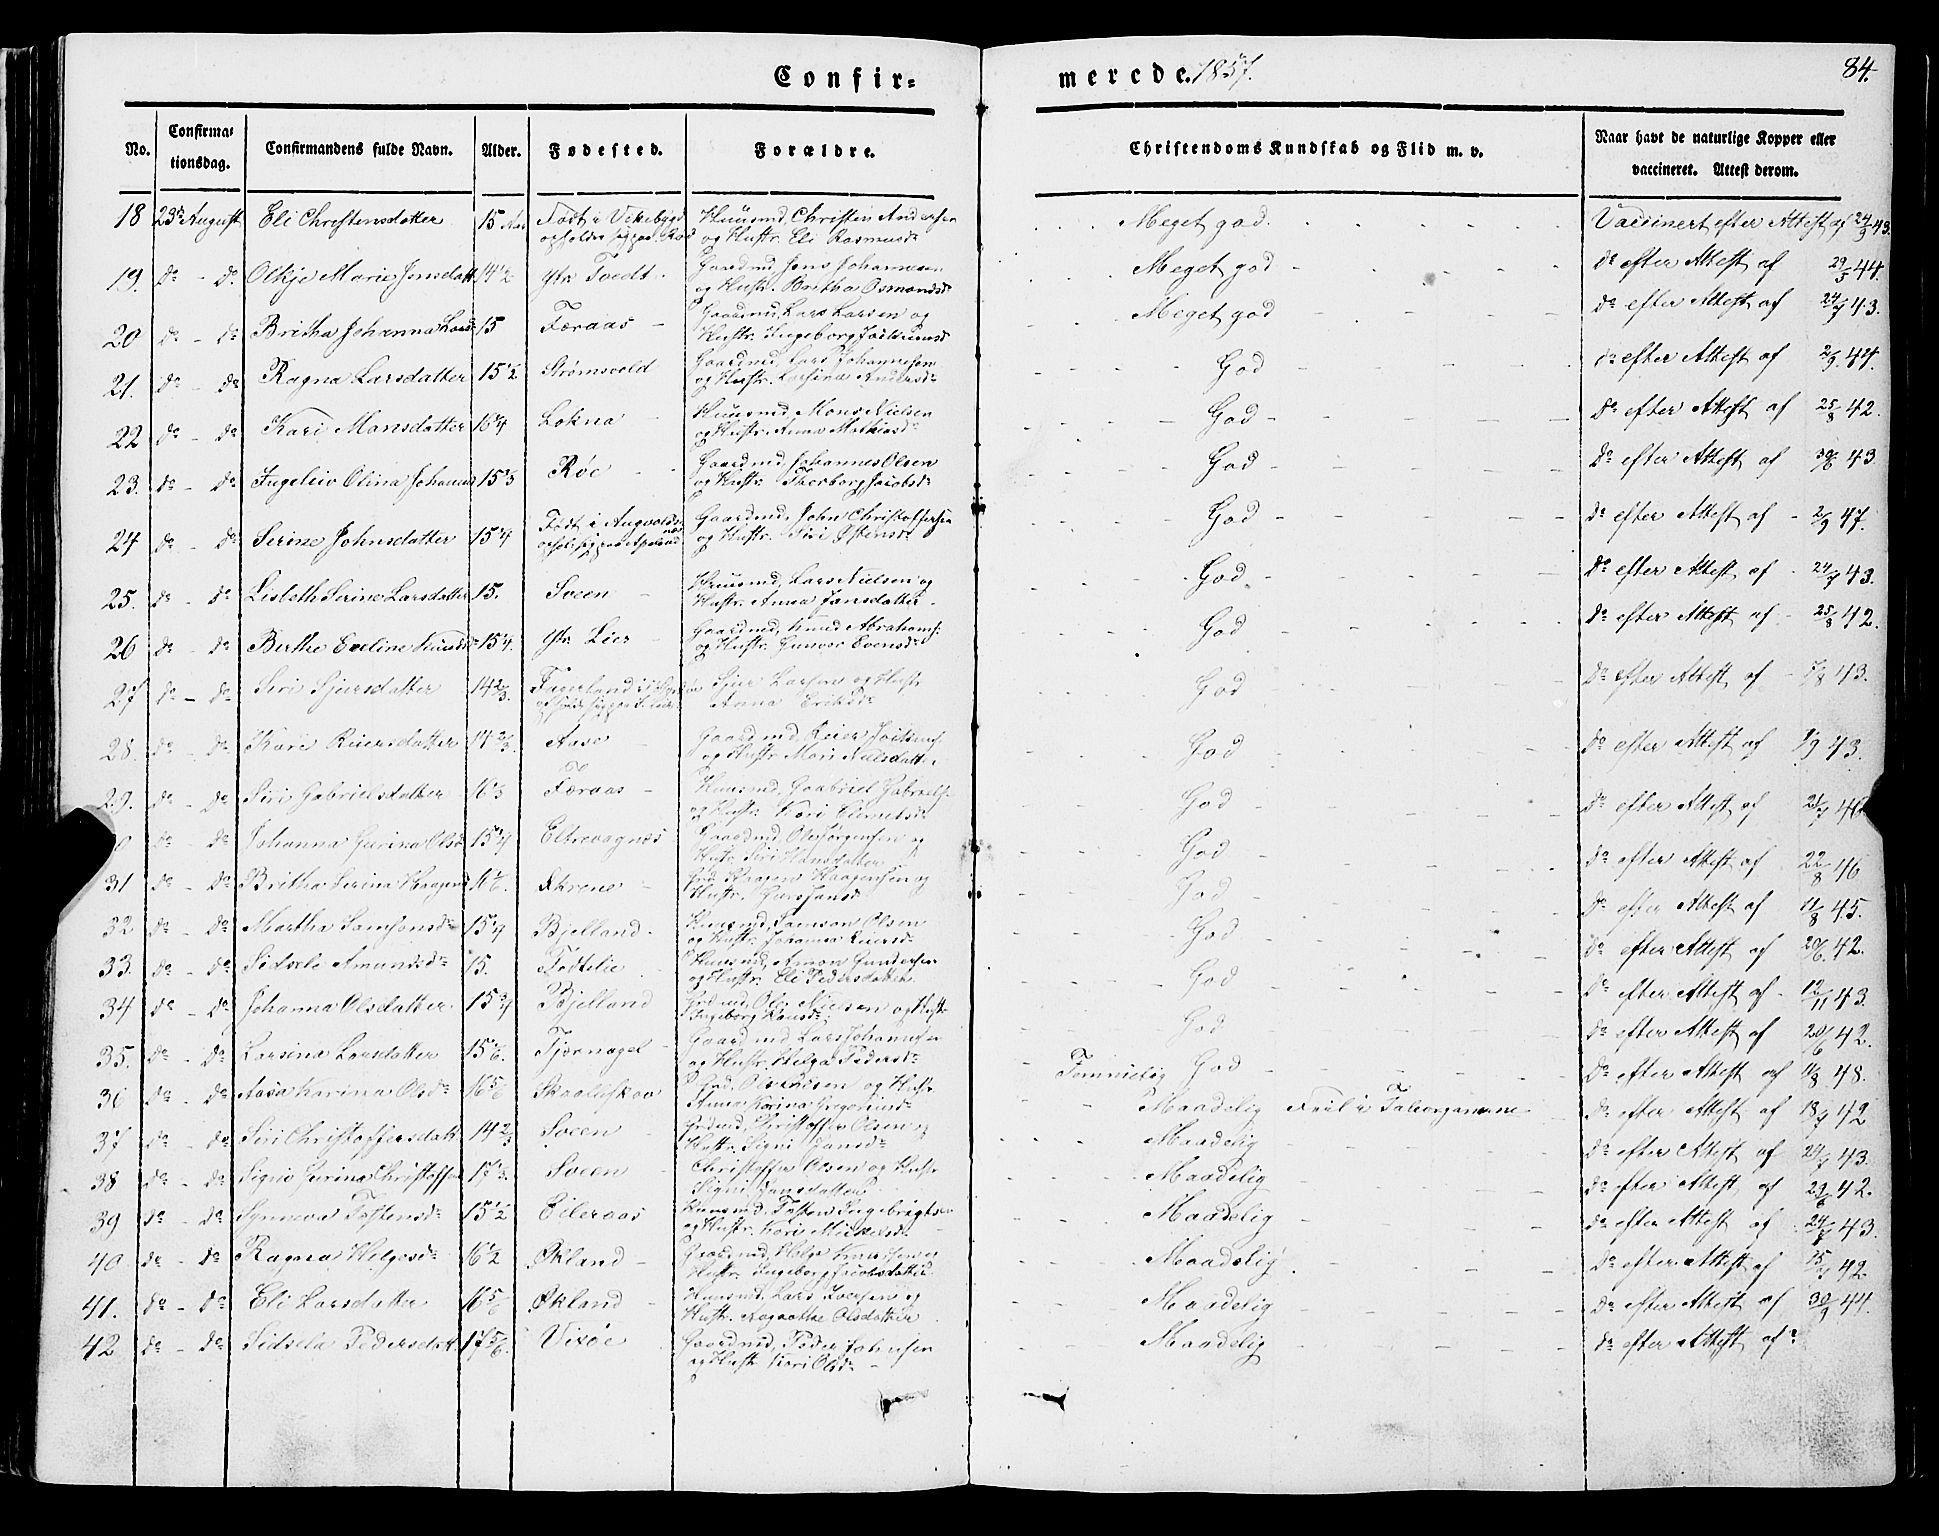 Confir= merede. 1857. 84.
No. Confirma= tionsdag. Confirmandens fulde Navn. Alder. Fødested. Forældre. Christendoms Kundskab og Flid m. v. Naar havt de naturlige Kopper eller vaccineret. Attest derom.
18 23de August Eli Christensdatter 15 Aar Født i Vikebygd Huusmd. Christen Andersen Meget god Vaccinert efter Attest af 24/9 43.
og Hustr. Eli Rasmusd.
19. do - do. Olkje Marie Jonsdatt 14 1/2 ytr. Tvedt. Gaardmd Jens Johannesen Meget god do efter Attest af 29/5 44.
og Hustr. Britha Osmundsd.
20 do - do Britha Johanna Larsd 15 Færaas Gaardmd, Lars Larsen og Meget god do efter Attest af 24/7 43.
Hustr. Ingeborg
21. do - do Ragna Larsdatter 15 1/2 Strømsvold Gaardmd, Lars Johannesen God do efter Attest af 2/9. 44.
og Hustr. Larsina Andersd.
22 do - do Kari Monsdatter 16 3/4 Lokna Huusmd, Mons Nielsen God do efter Attest af 25/8 42.
og Hustr. Anna Mathiasd.
23. do - do Ingeleiv Olina Johannes 15 2/3 Røe Gaardmd Johannes Olsen God do efter Attest af 30/6 43
og Hustr. Thorborg Jacobsd.
24 do - do Serine Johnsdatter 15 1/4 Født i Augvolds- Gaardmd, John Christoffersen God do efter Attest af 2/9 47.
og Hustr. Siri Østensd.
25. do - do Lisbeth Serine Larsdatter 15. Sveen Huusmd, Lars Nielsen og God do efter Attest af 24/7 43.
Hustr. Anna Jansdatter.
26 do - do Berthe Eveline Knudsd 15 1/4. ytr. Lier Gaardmd, Knud Abrahams: God do efter Attest af 25/8 42.
og Hustr. Gunvor Evensd.
27 do - do Siri Sjursdatter 14 2/3. Sjur Larsen og Hustr God do efter Attest af 7/8 43.
Anna Eriksd.
28. do - do Kari Reiersdatter 14 2/3. Aase Gaardmd Reier God do efter Attest af 1/9 43.
og Hustr Mari Nilsdatter
29. do - do Siri Gabrielsdatter 16 1/3 Færaas Huusmd, Gabriel Gabriels: God do efter Attest af 21/7 46
og Hustr. Kari
do - do Johanna Gurina Olsd 15 3/4 Eltrevagnæs Gaardmd, Ole Jørgensen og God do efter Attest af 22/8 46
Hustr. Siri Hansdatter
31 do - do Britha Serina Haagens 16 1/6. Skrene Haagen Haagensen og God do efter Attest af 11/8 45.
Hustr. Guri Jansd
32 do - do Martha Samsonsd. 15 1/4 Bjelland. Huusmd, Samson Olsen God do efter Attest af 20/6. 42.
og Hustr. Johanna Reiersd.
33. do - do Sidsele Amundsd. 15. Tødtelie Huusmd, Amon Gundersen God do efter Attest af 12/11 43.
og Hustr. Eli Pedersdatter
34 do - do Johanna Olsdatter. 15 3/4 Bjelland Ole Nielsen og Hustr God do efter Attest af 20/6 42.
Ingeborg Hansd.
35. do - do Larsina Larsdatter 15 1/6. Tjernagel Gaardmd Lars Johannesen Temmelig God do efter Attest af 11/8 48.
og Hustr. Helga Pedersd.
36 do - do Aasa Karina Olsd. 16 5/6 Skaalleskov og Hustr Maadelig Feil i Taleorganerne do efter Attest af 18/7 42
Anna Karina Gregoriusd.
37 do - do Siri Christoffersdatt. 14 2/3 Sveen Christoffer Olsen og Maadelig do efter Attest af 24/7 43.
Hustr. Signi Jansd.
38 do - do Signi Gurina Christoffer 17 1/3. Sveen Christoffer Olsen og Hustr Maadelig do efter Attest af 29/6 42.
Signi Jansdatter
39 do - do Synneva Tostensd. 15 1/2 Eileraas Huusmd, Tosten Ingebrigtsen Maadelig do efter Attest af 24/7 43.
og Hustr. Kari Mickelsd.
40. do - do Ragna Helgesd. 16 1/2 Økland Gaardmd, Helge Knudsen og Maadelig do efter Attest af 15/7 42.
Hustr. Ingeborg Jacobsdatter
41. do - do Eli Larsdatter 16 5/6 Økland Huusmd. Lars Iversen og Maadelig do efter Attest af 30/9 44.
Hustr. Aagaathe Olsdatter
42 do - do Sidsela Pedersdatt. 17 5/6. Vixøe Gaardmd, Peder Johnsen Maadelig do efter Attest af ?
og Hustr Kari Olsd.